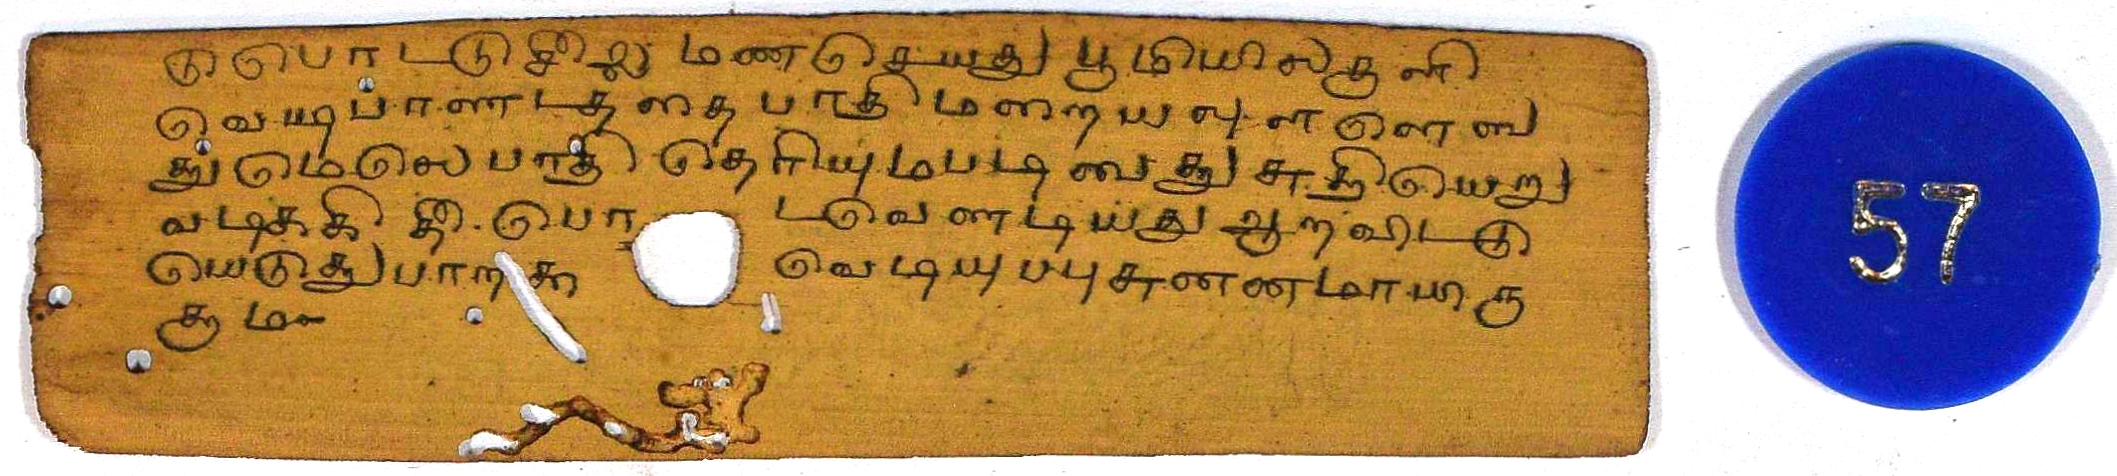 டுபொடடுசீலு மணசெயது பூமியிலகுளி
வெடிபபாணடததை பாதி மறையவுளளெவ
துமெலெ பாதி தெரியுமபடி வைதது சுததியெறு
வடிககி தீ.பொ டவெணடியது ஆறவிடடு
யெடுததுபாறகூ வெடியுபபு சுணணமாயிரு
கும
57